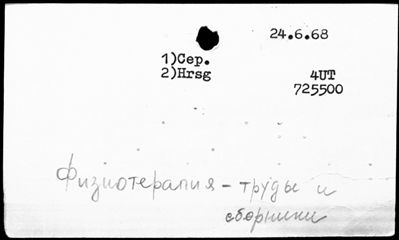 24.6.68
1)Сер.
2)Hrsg
4UT
725500
Физиотерапия - труды и
сборники